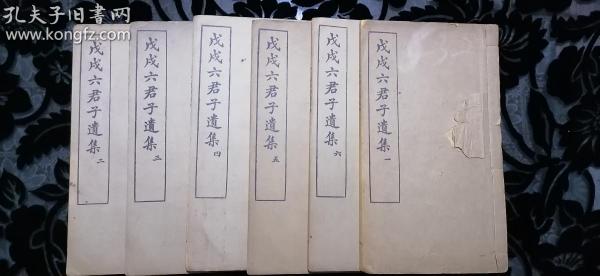 孔夫子旧書网
www.kongfz.com
戊戌六君子遺集 二
戊戌六君子遺集 三
戊戌六君子遺集 四
戊戌六君子遺集 五
戊戌六君子遺集 六
戊戌六君子遺集 一